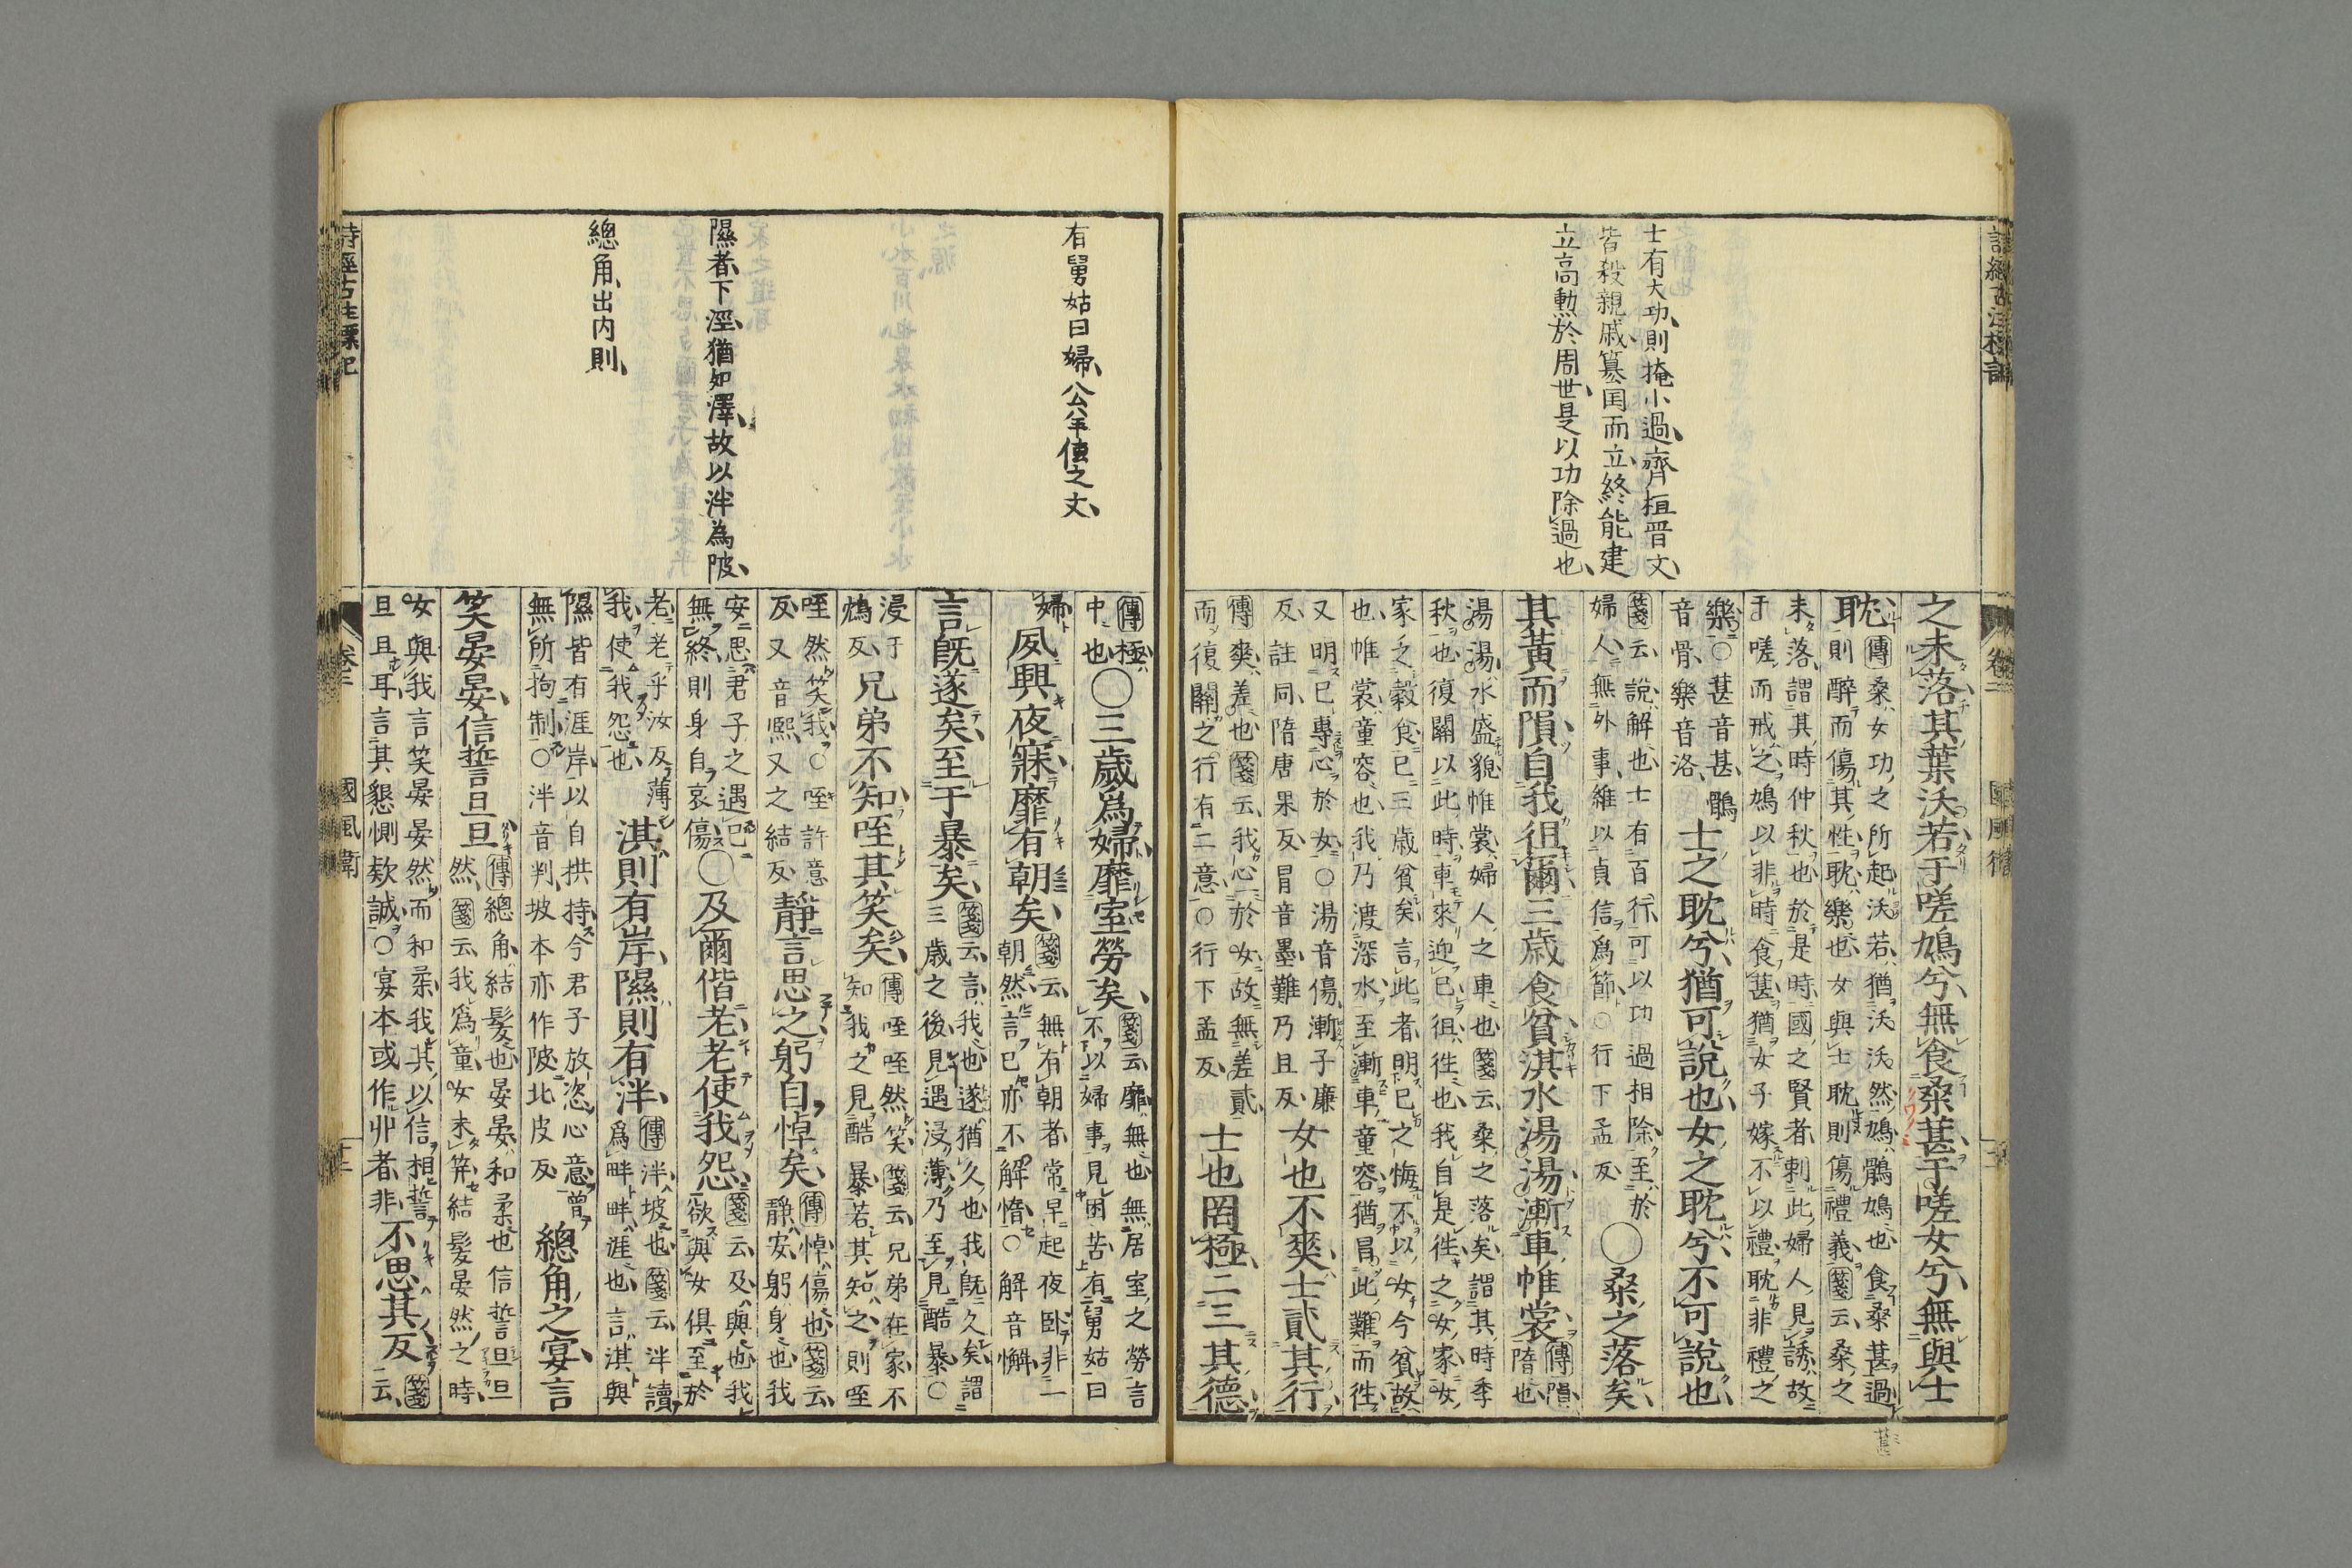 詩經古注標記
卷三
國風衛
士有大功則掩小過齊桓晋文
皆殺親戚簒囯而立終能建
立高勲於周世是以功除過也
之未落其葉沃若于嗟鳩兮無食桑葚于嗟女兮無與士
耽
傳桑女功之所起沃若猶沃沃然鳩鶻鳩也食桑葚過
則醉而傷其性耽樂也女與士耽則傷禮義箋云桑之
未落謂其時仲秋也於是時國之賢者刺此婦人見誘故
于嗟而戒之鳩以非時食葚猶女子嫁不以禮耽非禮之
樂○葚音甚鶻
音骨樂音洛
士之耽兮猶可說也女之耽兮不可說也
箋云說解也士有百行可以功過相除至於
婦人無外事維以貞信爲節○行下孟反
○桑之落矣
其黃而隕自我徂爾三歲食貧淇水湯湯漸車帷裳
傳隕
隋也
湯湯水盛貌帷裳婦人之車也箋云桑之落矣謂其時季
秋也復關以此時車來迎已徂徃也我自是徃之女家女
家乏穀食已三歲貧矣言此者明已之悔不以女今貧故
也帷裳童容也我乃渡深水至漸車童容猶冒此難而徃
又明已專心於女○湯音傷漸子廉
反註同隋唐果反冒音墨難乃且反
女也不爽士貳其行
傳爽差也箋云我心於女故無差貳
而復關之行有二意○行下孟反
士也罔極二三其德
葚
有舅姑曰婦公羊傳之文
隰者下溼猶如澤故以泮為陂
總角出内則
傳極
中也
○三歲爲婦靡室勞矣
箋云靡無也無居室之勞言
不以婦事見困苦有舅姑曰
婦
夙興夜寐靡有朝矣
箋云無有朝者常早起夜卧非一
朝然言已亦不解惰○解音懈
言既遂矣至于暴矣
箋云言我也遂猶久也我既久矣謂
三歲之後見遇浸薄乃至見酷暴○
浸于
鴆反
兄弟不知咥其笑矣
傳咥咥然笑箋云兄弟在家不
知我之見酷暴若其知之則咥
咥然笑我○咥許意
反又音熙又之結反
靜言思之躬自悼矣
傳悼傷也箋云
靜安躬身也我
安思君子之遇已
無終則身自哀傷
○及爾偕老老使我怨
箋云及與也我
欲與女俱至於
老老乎汝反薄
我使我怨也
淇則有岸隰則有泮
傳泮坡也箋云泮讀
爲畔畔涯也言淇與
隰皆有涯岸以自拱持今君子放恣心意曽
無所拘制○泮音判坡本亦作陂北皮反
總角之宴言
笑晏晏信誓旦旦
傳總角結髮也晏晏和柔也信誓旦旦
然箋云我爲童女未笄結髮晏然之時
女與我言笑晏晏然而和柔我其以信相誓
旦旦耳言其懇惻欵誠○宴本或作丱者非
不思其反
箋
云
詩經古注標記
卷三
國風衛
十二